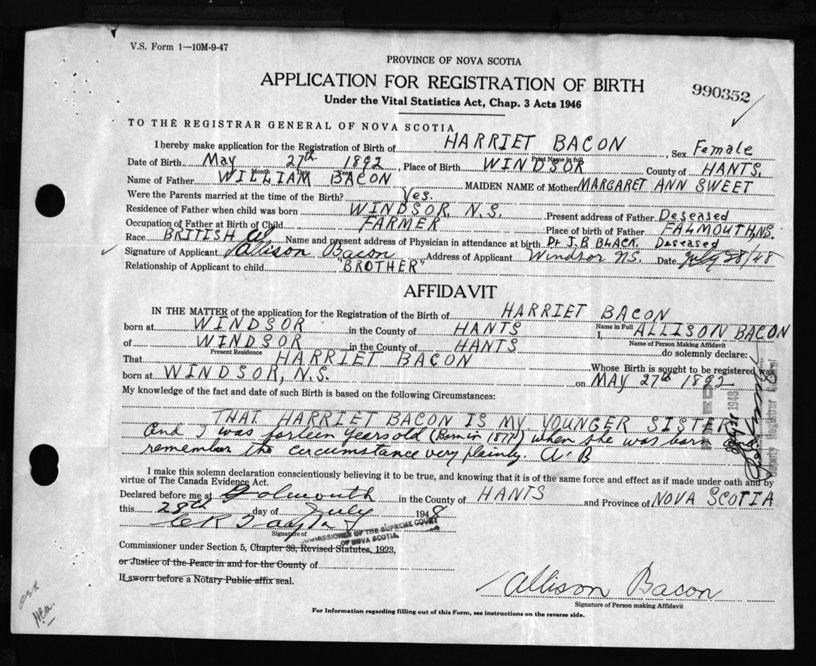 V.S. Form 1—10M-9-47
PROVINCE OF NOVA SCOTIA
APPLICATION FOR REGISTRATION OF BIRTH
990352
Under the Vital Statistics Act, Chap. 3 Acts 1946
TO THE REGISTRAR GENERAL OF NOVA SCOTIA
I hereby make application for the Registration of Birth of HARRIET BACON, Sex Female
Date of Birth May 27th 1892, Place of Birth WINDSOR County of HANTS.
Name of Father WILLIAM BACON MAIDEN NAME of Mother MARGARET ANN SWEET
Were the Parents married at the time of the Birth? Yes.
Residence of Father when child was born WINDSOR, N.S. Present address of Father Deseased
Occupation of Father at Birth of Child FARMER Place of birth of Father FALMOUTH, NS.
Race BRITISH Name and present address of Physician in attendance at birth Dr J. B. BLACK. Deseased
Signature of Applicant Allison Bacon Address of Applicant Windsor N.S. Date July 28/48
Relationship of Applicant to child "BROTHER"
AFFIDAVIT
IN THE MATTER of the application for the Registration of the Birth of HARRIET BACON
born at WINDSOR in the County of HANTS I, Name in Full ALLISON BACON
Name of Person Making Affidavit
of WINDSOR in the County of HANTS do solemnly declare:
Present Residence
That HARRIET BACON Whose Birth is sought to be registered was
born at WINDSOR, N.S. on MAY 27th 1892
My knowledge of the fact and date of such Birth is based on the following Circumstances:
THAT HARRIET BACON IS MY YOUNGER SISTER
And I was forteen years old (Born in 1878) when she was born and
remember the circumstance very plainly. A.B
I make this solemn declaration conscientiously believing it to be true, and knowing that it is of the same force and effect as if made under oath and by
virtue of The Canada Evidence Act.
Declared before me at Falmouth in the County of HANTS and Province of NOVA SCOTIA
this 28th day of July 1948
Signature of
COMMISSIONER OF THE SUPREME COURT
OF NOVA SCOTIA
Commissioner under Section 5, Chapter 38, Revised Statutes, 1923,
or Justice of the Peace in and for the County of
If sworn before a Notary Public affix seal.
Allison Bacon
Signature of Person making Affidavit
For Information regarding filling out of this Form, see instructions on the reverse side.